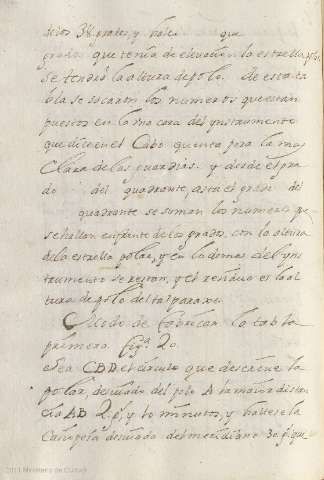 dichos 38. grados, y hare que
grados que tenia de elevacion la estrella polar
se tendra la altura de polo. De esta ta
bla se sacaron los numeros que estan
puestos en la una cara del ynstrumento
que dice en el Cabo quenta para la mas
Clara de las guardias. y desde el gra
do del quadrante, asta el grado del
quadrante se suman los numeros que
se hallan enfrente de los grados, con la altura
de la estrella polar, y en lo demas del yns
trumento se restan, y el residuo es la al
tura de polo del tal paraxe.
Modo de fabricar la tabla
primera. fig.a 20.
Sea CBD el circulo que describe la
polar, desviada del polo A la maior distan
cia AB 2. g.s y 40 minutos, y hallese la
desviada del meridiano 30 g.s que
2011 Ministerio de Cultura